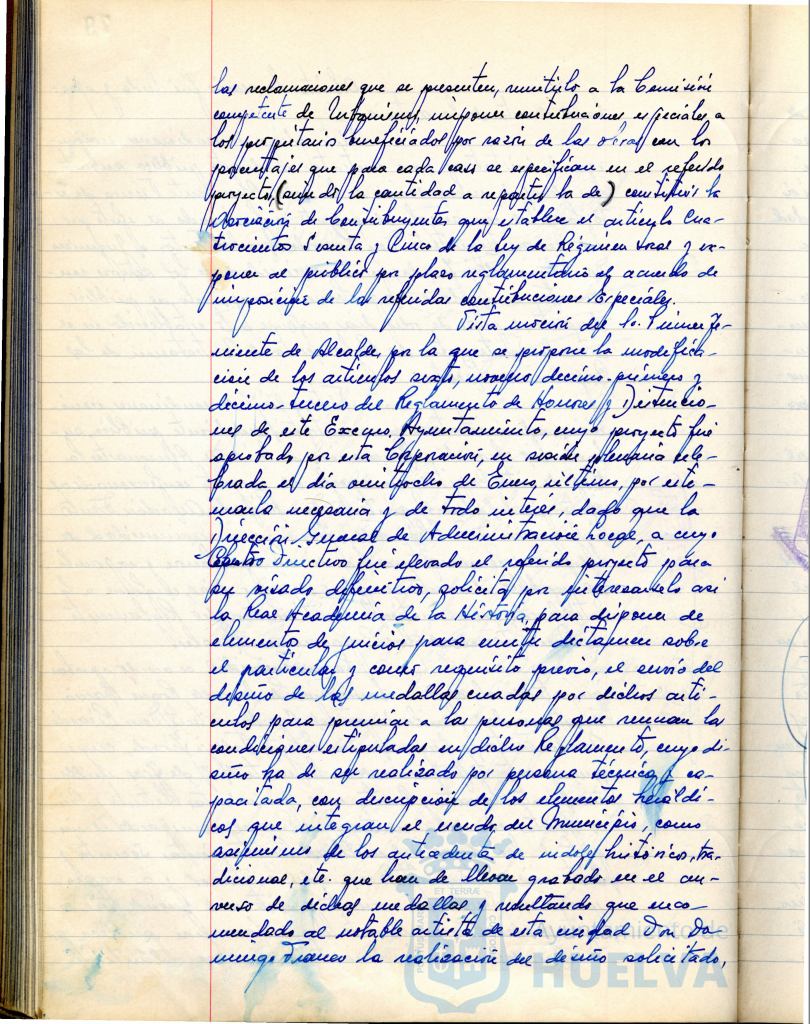 las reclamaciones que se presenten, remitirlo a la Comisión
competente de Urbanismo, imponer contribuciones especiales a
los propietarios beneficiados por razón de las obras con los
porcentajes que para cada caso se especifican en el referido
proyecto, (siendo la cantidad a repartir la de) constituir la
Asociación de Contribuyentes que establece el artículo Cua-
trocientos Sesenta y Cinco de la Ley de Régimen Local y ex-
poner al público por plazo reglamentario el acuerdo de
imposición de las referidas contribuciones Especiales.
Vista moción del Sr. Primer Te-
niente de Alcalde, por la que se propone la modifica-
ción de los artículos sexto, noveno, décimo-primero y
décimo-tercero del Reglamento de Honores y Distincio-
nes de este Excmo. Ayuntamiento, cuyo proyecto fué
aprobado por esta Corporación, en sesión plenaria cele-
brada el día veintiocho de Enero último, por esti-
marla necesaria y de todo interés, dado que la
Dirección General de Administración Local, a cuyo
Centro Directivo fué elevado el referido proyecto para
su visado definitivo, solicita por interesarselo asi
la Real Academia de la Historia, para disponer de
elementos de juicios para emitir dictamen sobre
el particular y como requisito previo, el envio del
diseño de las medallas creadas por dichos artí-
culos para premiar a las personas que reunan las
condiciones estipuladas en dicho Reglamento, cuyo di-
seño ha de ser realizado por persona técnica y ca-
pacitada, con descripcion de los elementos heráldi-
cos que integran el escudo del Municipio, como
asimismo de los antecedentes de indole histórico, tra-
dicional, etc. que han de llevar grabado en el an-
verso de dichas medallas y resultando que enco-
mendado al notable artista de esta ciudad Don Do-
mingo Franco la realización del diseño solicitado,
Ayuntamiento de
HUELVA